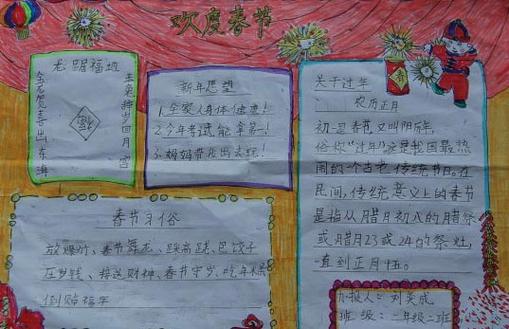 欢度春节
龙踞福地
金龙赞喜出东海
福
新年愿望
1.全家人身体健康!
2.今年考试能拿第一!
3.妈妈带我出去玩!
关于过年
农历正月
初一是春节又叫阴历年,
俗称"过年"这是我国最热
闹的一个古老传统节日。在
民间,传统意义上的春节
是指从腊月初八的腊祭
或腊月23或24的祭灶,
一直到正月十五。
春节习俗
放爆炸、春节舞龙、踩高跷、包饺子
压岁钱、接送财神、春节守岁、吃年糕
倒贴福字
办报人:刘奕成
班级:二年级二班